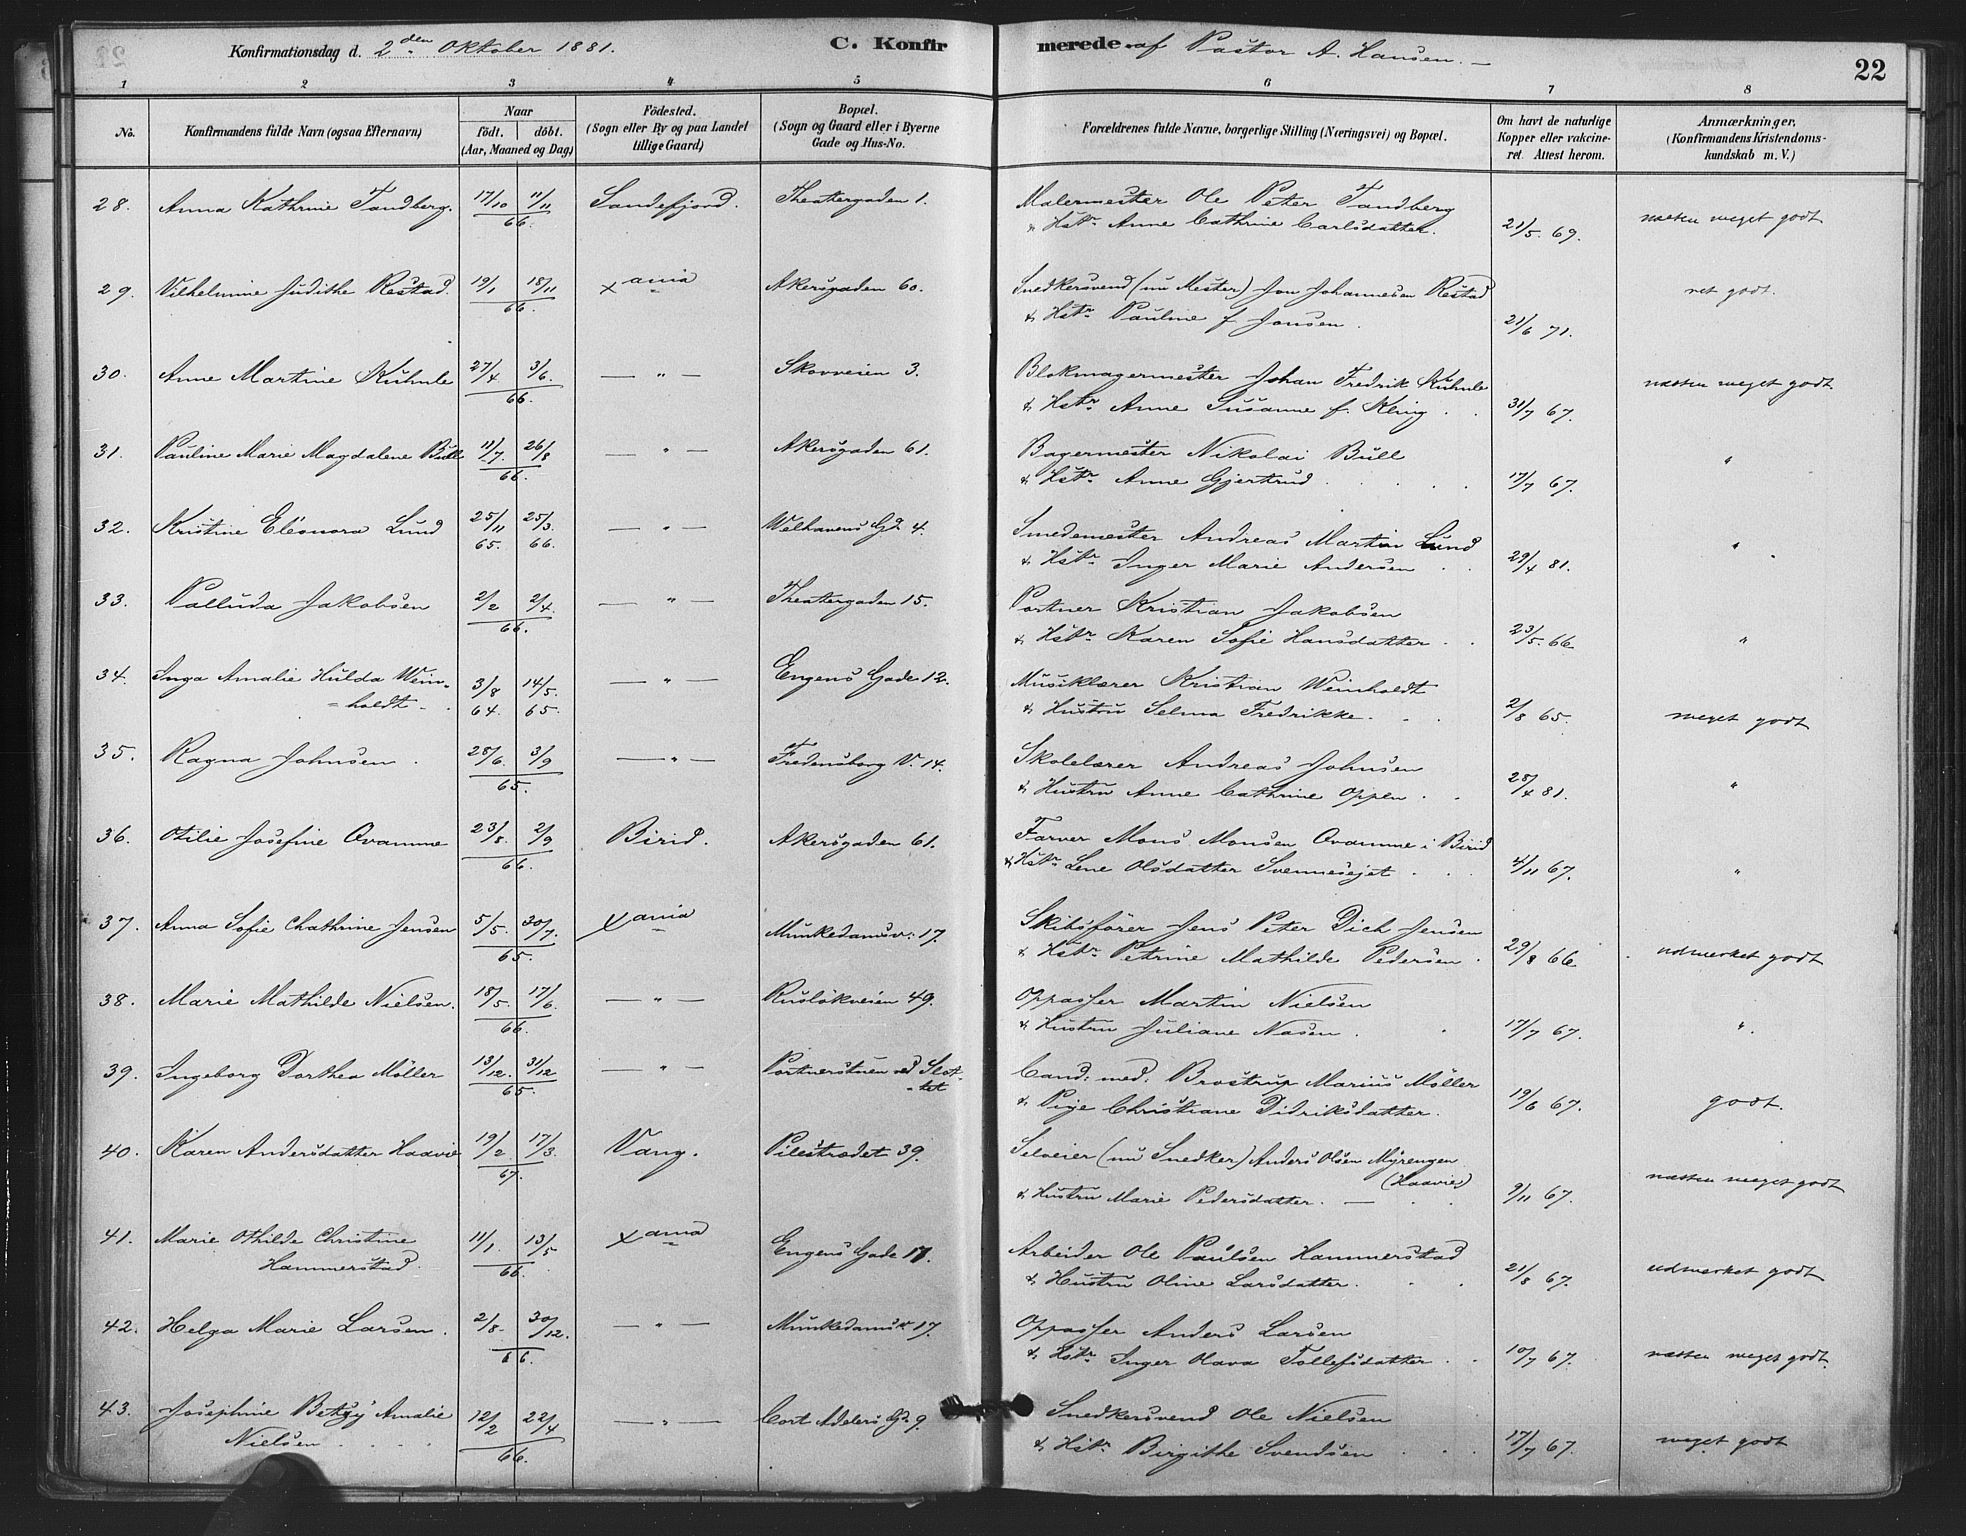 Konfirmationsdag d. 2den Oktober 1881. C. Konfirmerede af Pastor A. Hansen. 22
1 2 3 4 5 6 7 8
No. Konfirmandens fulde Navn (ogsaa Efternavn) Naar födt. döbt. (Aar, Maaned og Dag) Födested. (Sogn eller By og paa Landet tillige Gaard) Bopæl. (Sogn og Gaard eller i Byerne Gade og Hus-No. Forældrenes fulde Navne, borgerlige Stilling (Næringsvei) og Bopæl. Om havt de naturlige Kopper eller vakcineret. Attest herom. Anmærkninger, (Konfirmandens Kristendomskundskab m. V.)
28. Anna Kathrine Tandberg. 17/10 11/11 66. Sandefjord. Theatergaden 1. Malermester Ole Peter Tandberg
& Hstr. Anne Cathrine Carlsdatter. 21/5 69. næsten meget godt
29. Vilhelmine Judithe Restad. 19/1 18/11 66. Xania Akersgaden 60. Snedkersvend (nu Mester) Jon Johannesen Restad
& Hstr. Pauline f. Jonsen. 21/6 71. ret godt.
30. Anne Martine Kuhnle 27/4 3/6. 66. — " — Skovveien 3. Blokmagermester Johan Fredrik Kuhnle
& Hstr. Anne Susanne f. Kling. 31/7 67. næsten meget godt
31. Pauline Marie Magdalene Bull 11/7. 26/8 66. — " — Akersgaden 61. Bagermester Nikolai Bull
& Hstr. Anne Gjertrud 17/7 67. "
32. Kristine Eleonora Lund 25/11 65. 25/3. 66. — " — Welhavens Gd. 4. Smedemester Andreas Martin Lund
& Hstr. Inger Marie Andersen 29/4 81. "
33. Palluda Jakobsen 2/2 2/4. 66. — " — Theatergaden 15. Portner Kristian Jakobsen
& Hstr. Karen Sofie Hansdatter 23/5. 66. "
34. Inga Amalie Hulda Wein- 3/8 64. 14/5. 65. — " — Engens Gade 12. Musiklærer Kristian Weinholdt
=holdt. & Hustru Selma Fredrikke. 2/8 65. meget godt
35. Ragna Johnsen. 28/6. 3/9 65. — " — Fredensborg V. 14. Skolelærer Andreas Johnsen
& Hustru Anne Cathrine Oppen. 28/4 81. "
36. Otilie Josefine Qvamme 23/8. 2/9 66. Birid. Akersgaden 61. Farver Mons Monsen Qvamme i Birid
& Hstr. Lene Olsdatter Svennesejet 4/11 67. "
37. Anna Sofie Chathrine Jensen 5/5. 30/7 65. Xania Munkedamsv. 17. Skibsfører Jens Peter Dich Jensen
& Hstr. Petrine Mathilde Pedersen. 29/8 66 udmerket godt
38. Marie Mathilde Nielsen. 18/5. 17/6. 66. — " — Ruslökveien 49. Oppasser Martin Nielsen
& Hustru Juliane Nasen. 17/7 67. "
39. Ingeborg Dorthea Möller 13/12. 31/12 65. — " — Portnerstuen ved Slot-
-tet Cand. med. Brostrup Marius Möller
& Pige Christiane Didriksdatter. 19/6 67. godt.
40. Karen Andersdatter Haavie 19/2 17/3. 67. Vang. Pilestrædet 39. Selveier (nu Snedker) Anders Olsen Myrengen
(Haavie)
& Hustru Marie Pedersdatter. 9/11 67. næsten meget godt
41. Marie Othilde Christine 11/1 13/5 66. Xania Engens Gade 17. Arbeider Ole Paulsen Hammerstad
Hammerstad. & Hustru Oline Larsdatter. 21/8 67. udmerket godt
42. Helga Marie Larsen. 2/8. 30/12. 66. — " — Munkedamsv. 17. Oppasser Anders Larsen
& Hstr. Inger Olava Tollefsdatter. 10/7 67. næsten meget godt.
43. Josephine Betzy Amalie 12/2 22/4 66. — " — Cort Adelers Gd. 9. Snedkersvend Ole Nielsen
Nielsen & Hstr. Birgithe Svendsen 17/7 67. meget godt